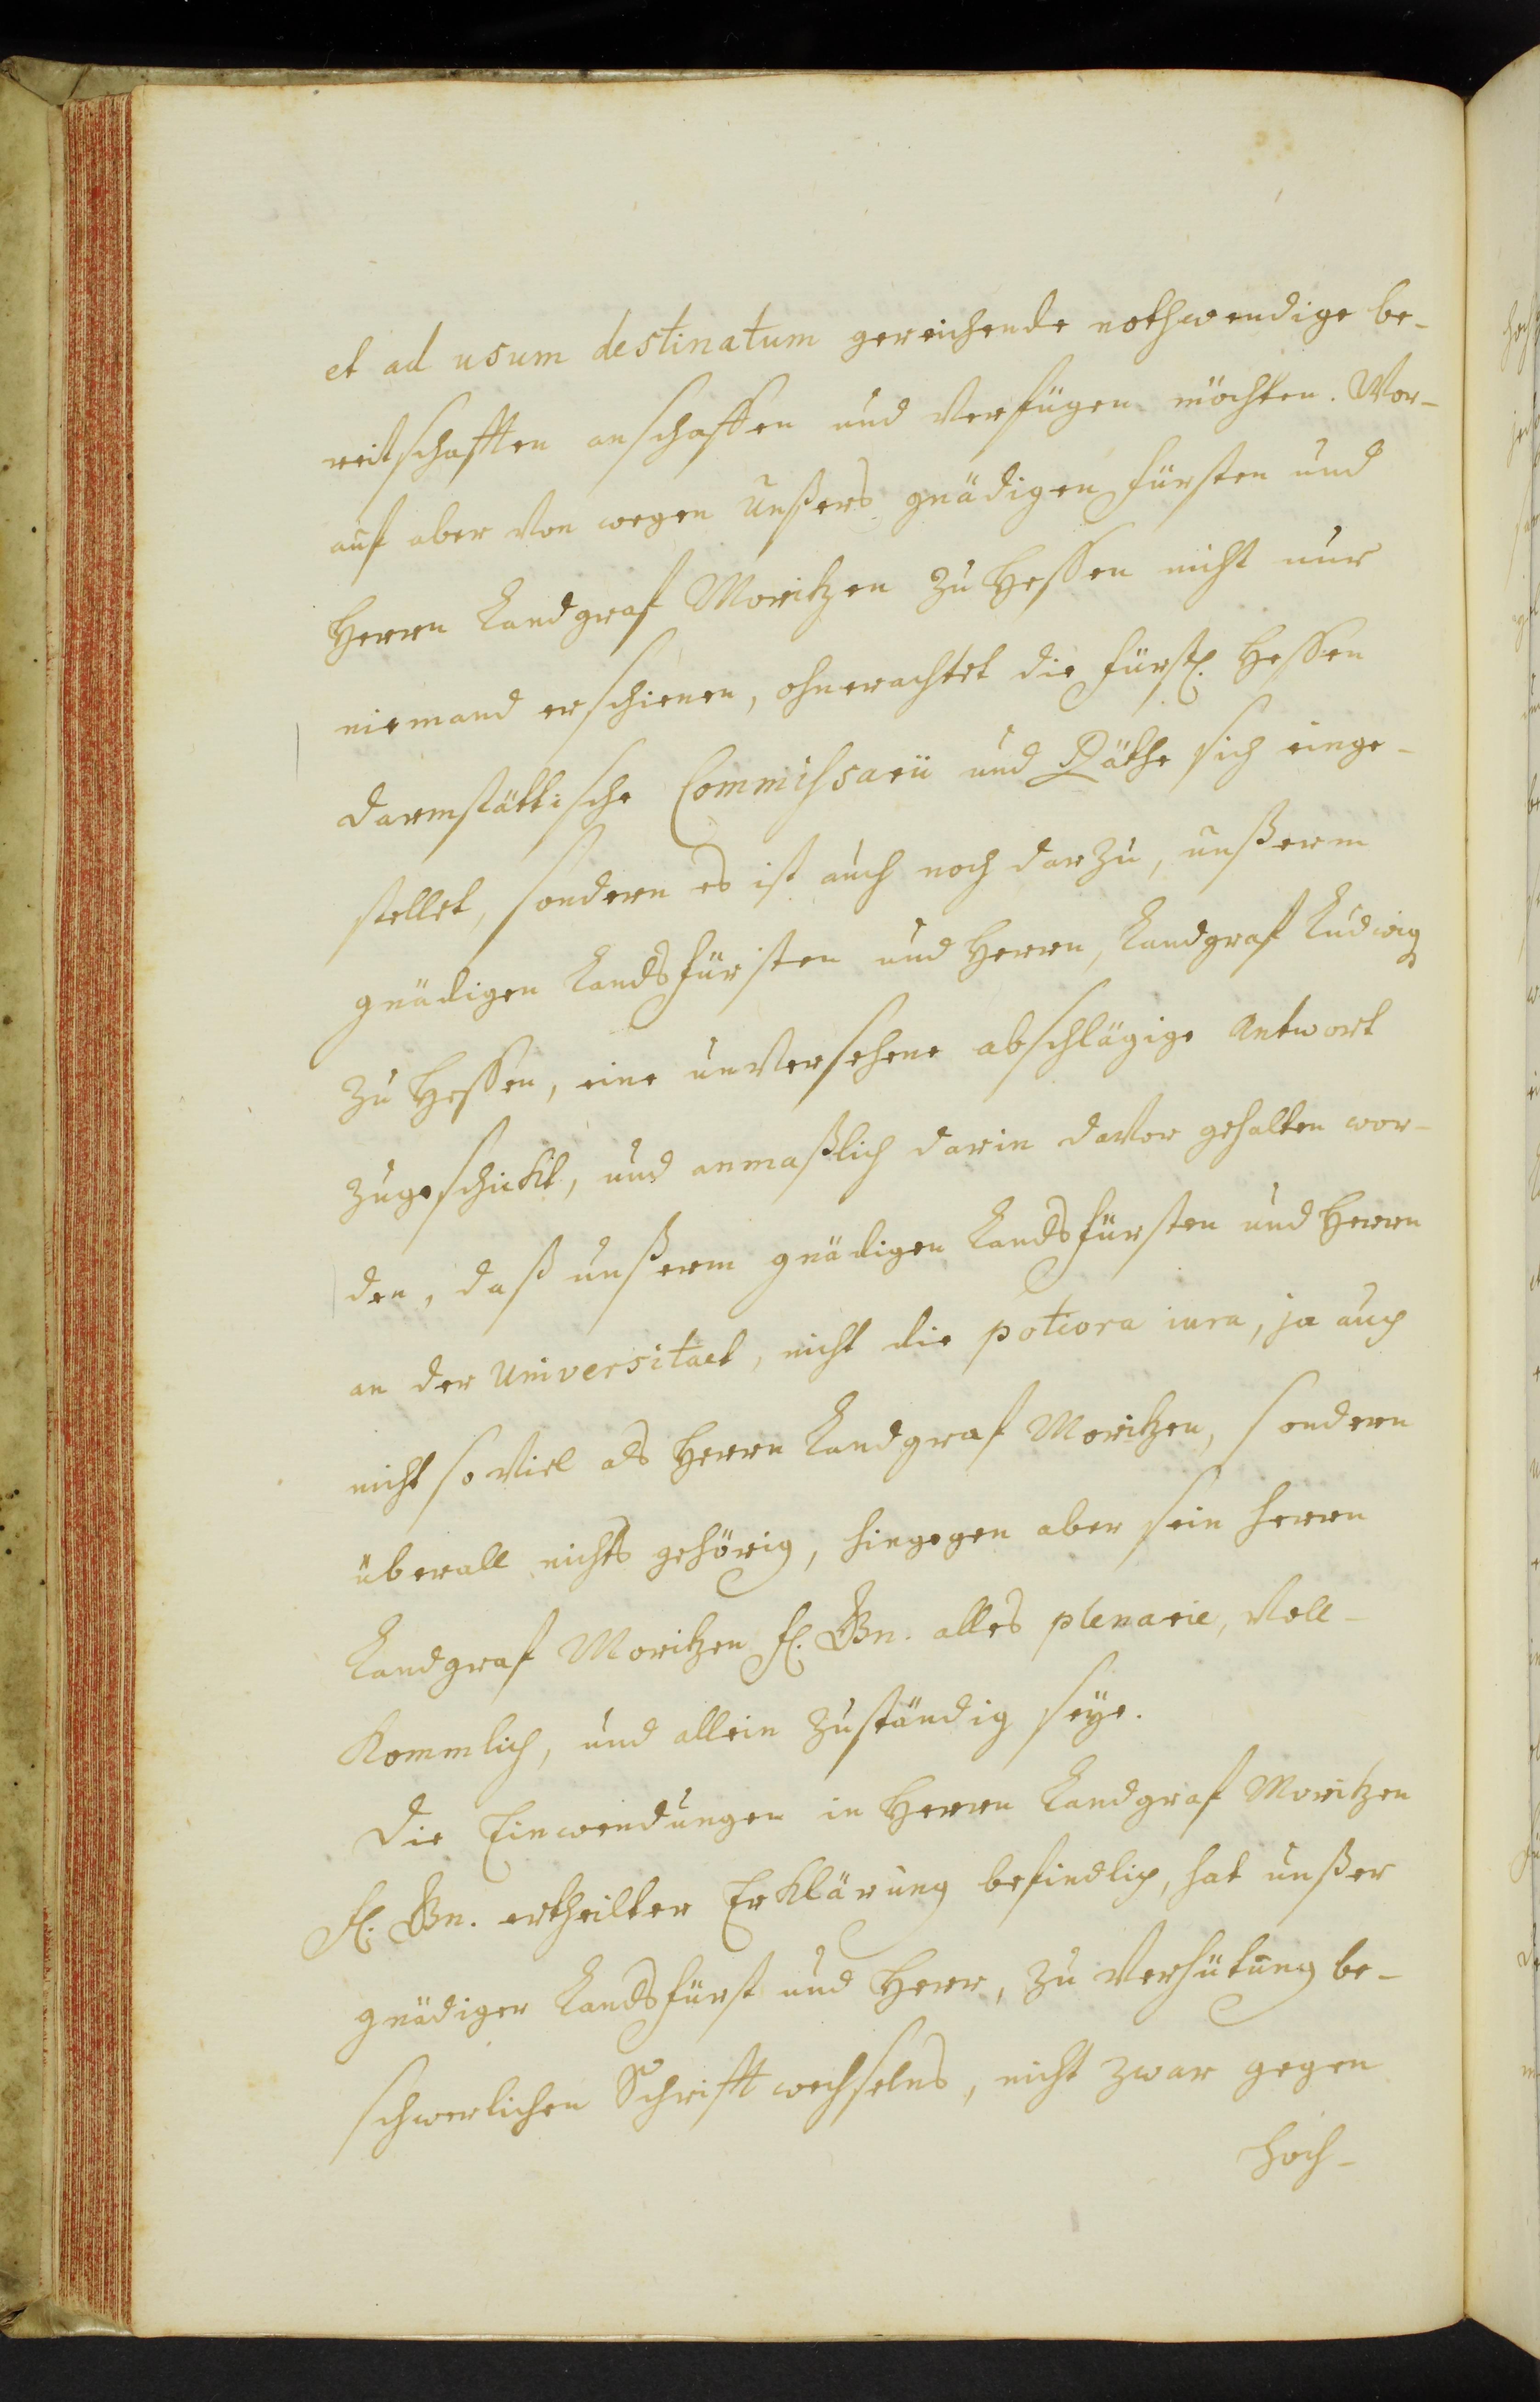 et ad usum destinatum gereichende nothwendige be-
reitschafften anschaffen und verfügen möchten. Wor-
auf aber von wegen unßers gnädigen Fürsten und
Herrn Landgraf Moritzen zu Hessen nicht nur
niemand erschienen, ohnerachtet die fürstl. Hessen
Darmstättische Commissarii und Räthe sich einge-
stellet, sondern es ist auch noch darzu, unßerm
gnädigen Landsfürsten und Herrn, Landgraf Ludwig
zu Hessen, eine unversehene abschlägige Antwort
zugeschickt, und anmaßlich darin davor gehalten wor-
den, daß unßerm gnädigen Landsfürsten und Herrn
an der Universitaet, nicht die potiora iura, ja auch
nicht so viel als Herrn Landgraf Moritzen, sondern
überall nichts gehörig, hingegen aber sein Herrn
Landgraf Moritzen fl. Gn. alles plenarie, voll-
kommlich, und allein zuständig seye.
Die Einwendungen in Herrn Landgraf Moritzen
fl. Gn. ertheilter Erklärung befindlich, hat unßer
gnädiger Landsfürst und Herr, zu Verhütung be-
schwerlichen Schrifftwechselns, nicht zwar gegen
hoch-